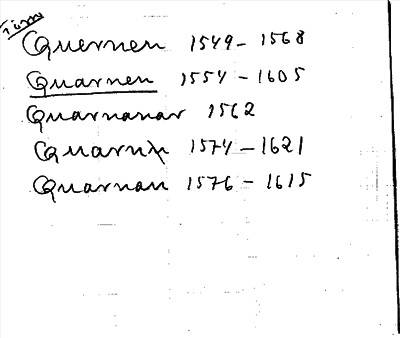 Quernen 1549-1568
Quarnen 1554-1605
Quarnanar 1562
Quarnn 1574-1621
Quarnan 1576-1615